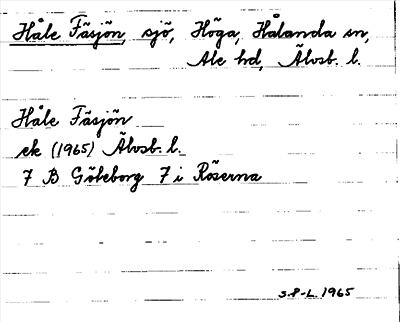 Håle Fäsjön, sjö, Höga, Hålanda sn,
Ale hd, Älvsb. l.
Håle Fäsjön
ek (1965) Älvsb. l.
7 B Göteborg 7 i Röserna
S.P-L 1965